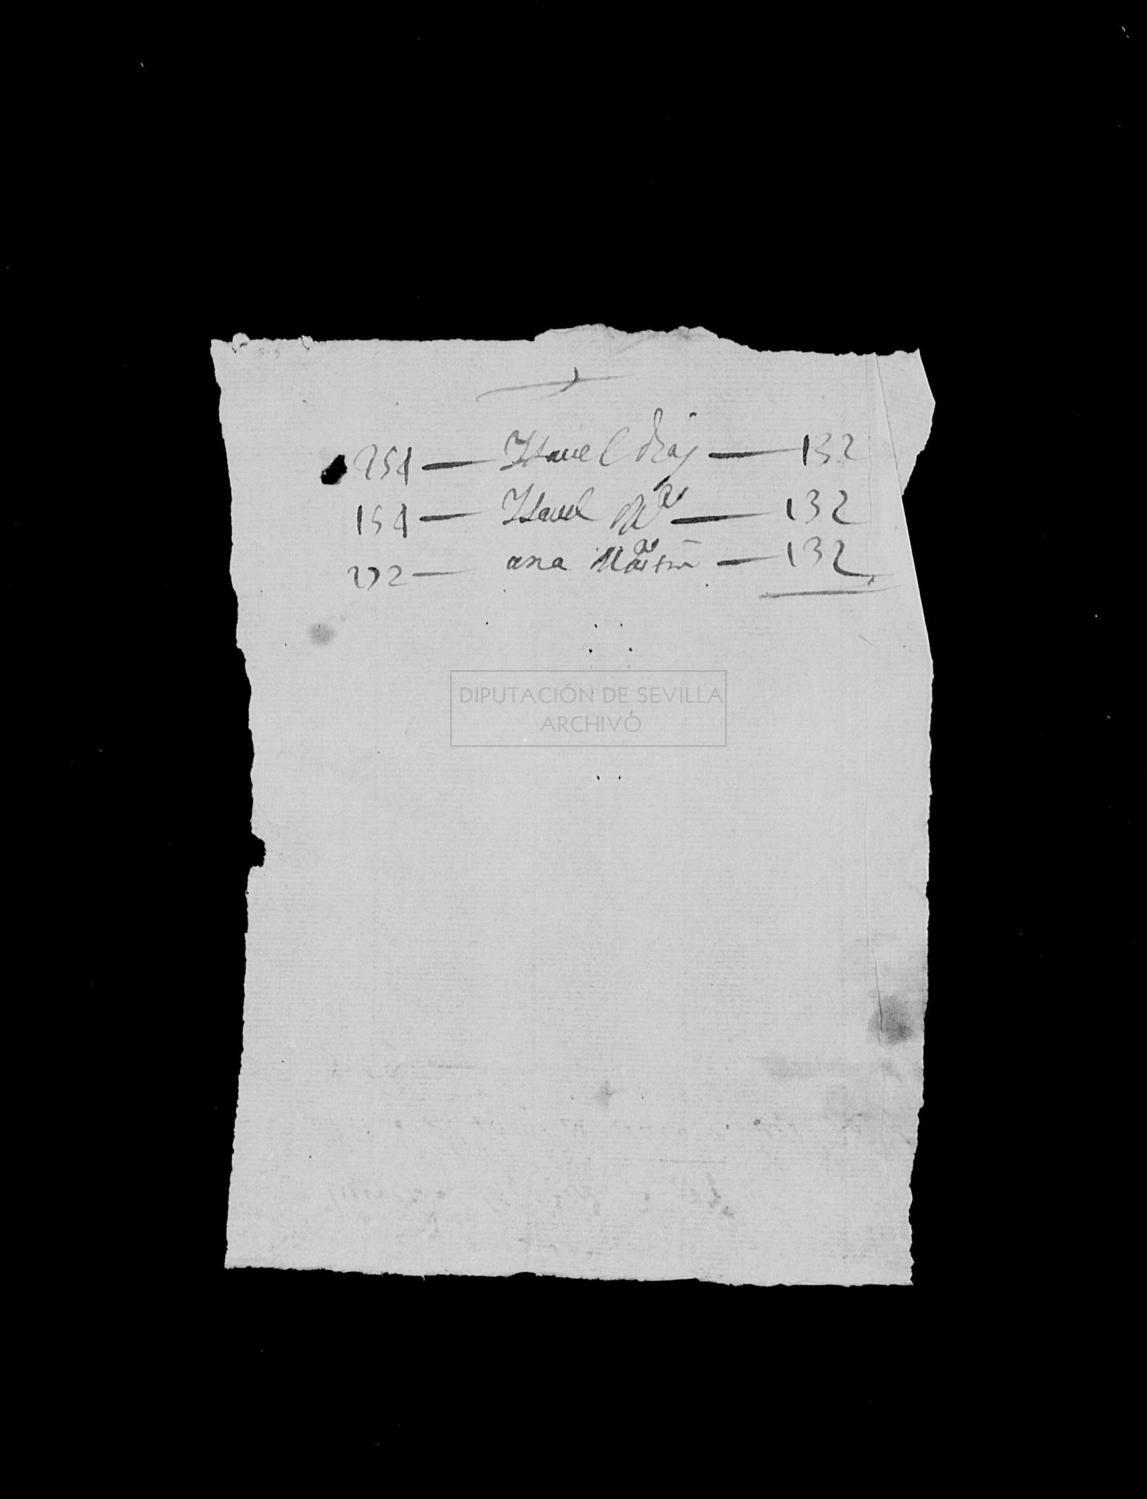 254 — Ysavel diaz — 132
154 — Ysavel — 132
272 — ana Martin — 132
DIPUTACIÓN DE SEVILLA
ARCHIVO